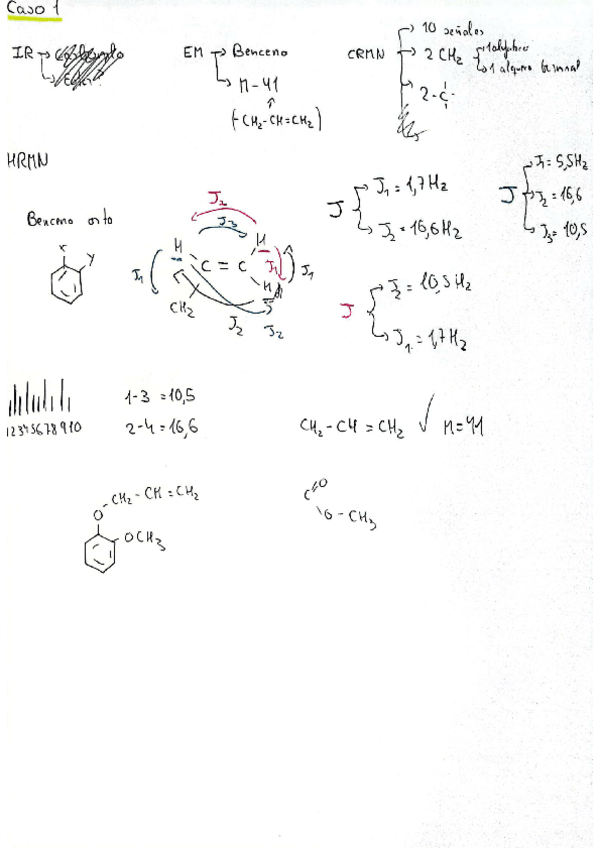 Caso 1
IR →
EM → Benceno
→ M-41
(-CH2-CH=CH2)
CRMN → 10 señales
→ 2 CH2
→ 1 alqueno terminal
→ 2-C-
HRMN
Benceno orto
X
Y
J2
J3
H
H
J1
C = C
J1
J1
H
CH2
J2
J2
J → J1 = 1,7 Hz
→ J2 = 16,6 Hz
J → J1 = 5,5 Hz
→ J2 = 16,6
→ J3 = 10,5
J → J2 = 10,5 Hz
→ J1 = 1,7 Hz
1 2 3 4 5 6 7 8 9 10
1-3 = 10,5
2-4 = 16,6
CH2-CH=CH2 ✓ M=41
O-CH2-CH=CH2
OCH3
C=O
O-CH3